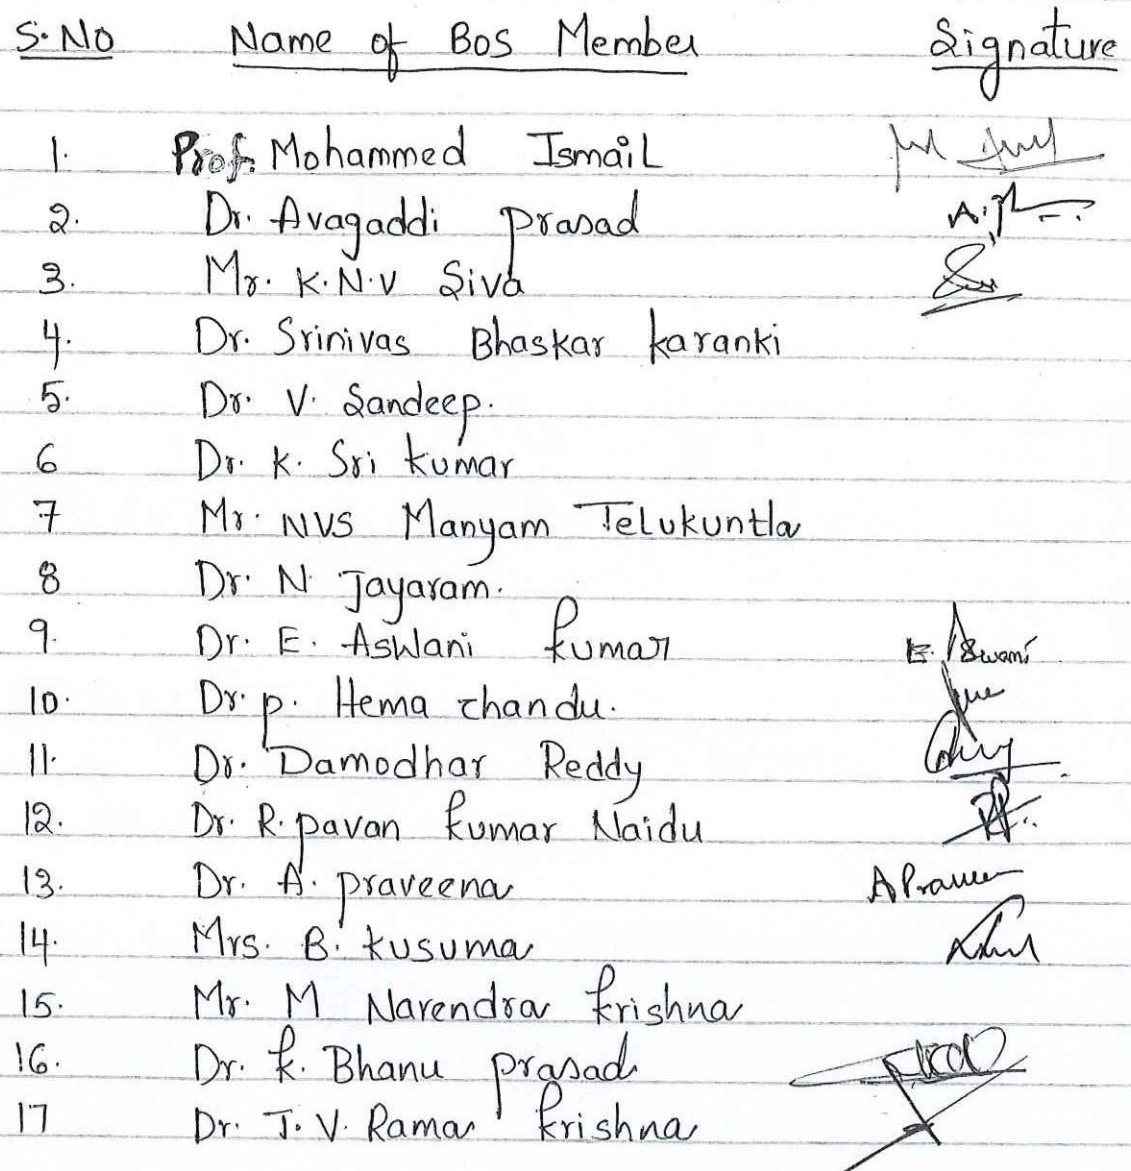 S.No Name of BoS Member Signature
1. Prof. Mohammed Ismail
2. Dr. Avagaddi prasad
3. Mr. K.N.V Siva
4. Dr. Srinivas Bhaskar karanki
5. Dr. V. Sandeep.
6 Dr. K. Sri kumar
7 Mr. NVS Manyam Telukuntla
8 Dr. N. Jayaram.
9. Dr. E. Aswani kumar E. Aswani
10. Dr. p. Hema chandu.
11. Dr. Damodhar Reddy
12. Dr. R. pavan kumar Naidu
13. Dr. A. praveena A Praveen
14. Mrs. B. kusuma
15. Mr. M Narendra krishna
16. Dr. k. Bhanu prasad
17 Dr. T. V. Rama krishna